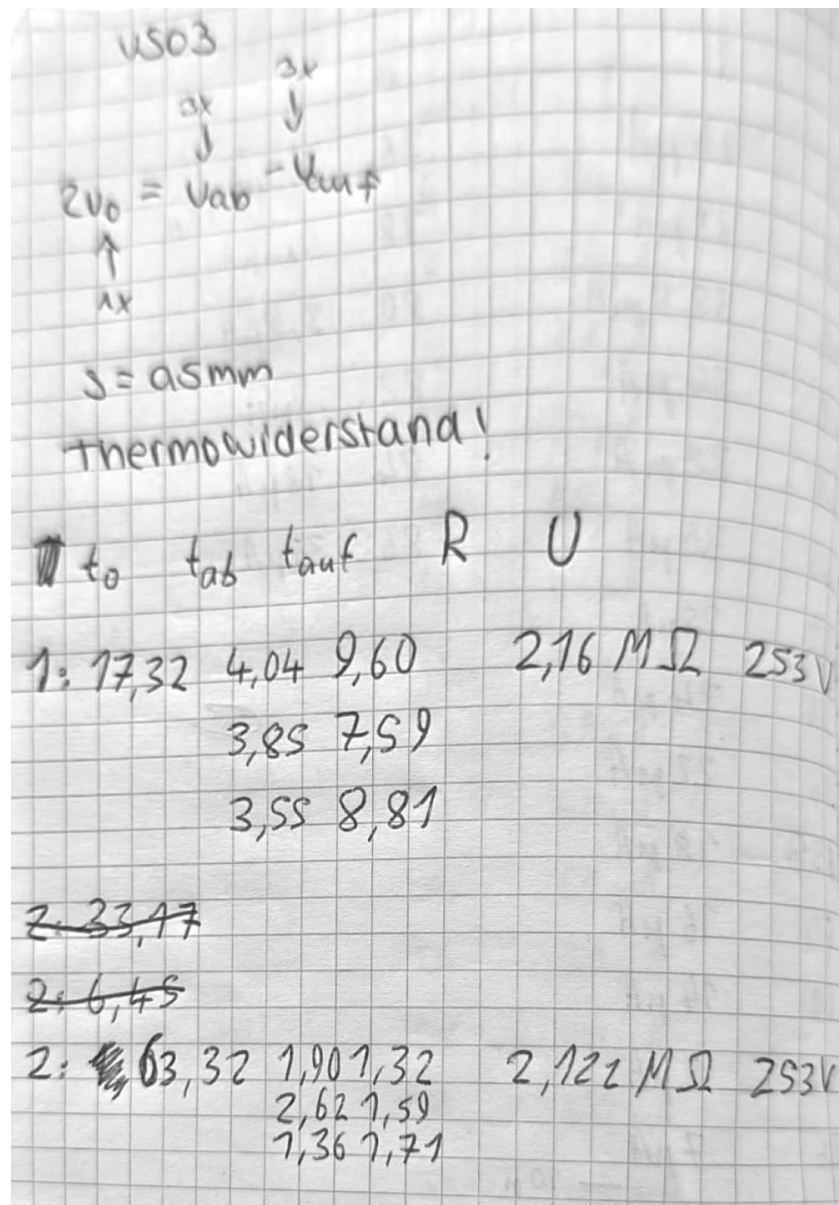 US03
3x
3x
↓ ↓
2v0 = Vab - Vauf
↑
1x
s = 0,5mm
Thermowiderstand!
t0 tab tauf R U
1: 17,32 4,04 9,60 2,16 MΩ 253V
3,85 7,59
3,55 8,81
2: 33,17
2: 6,45
2: 63,32 1,90 1,32 2,122 MΩ 253V
2,62 1,59
1,36 1,71